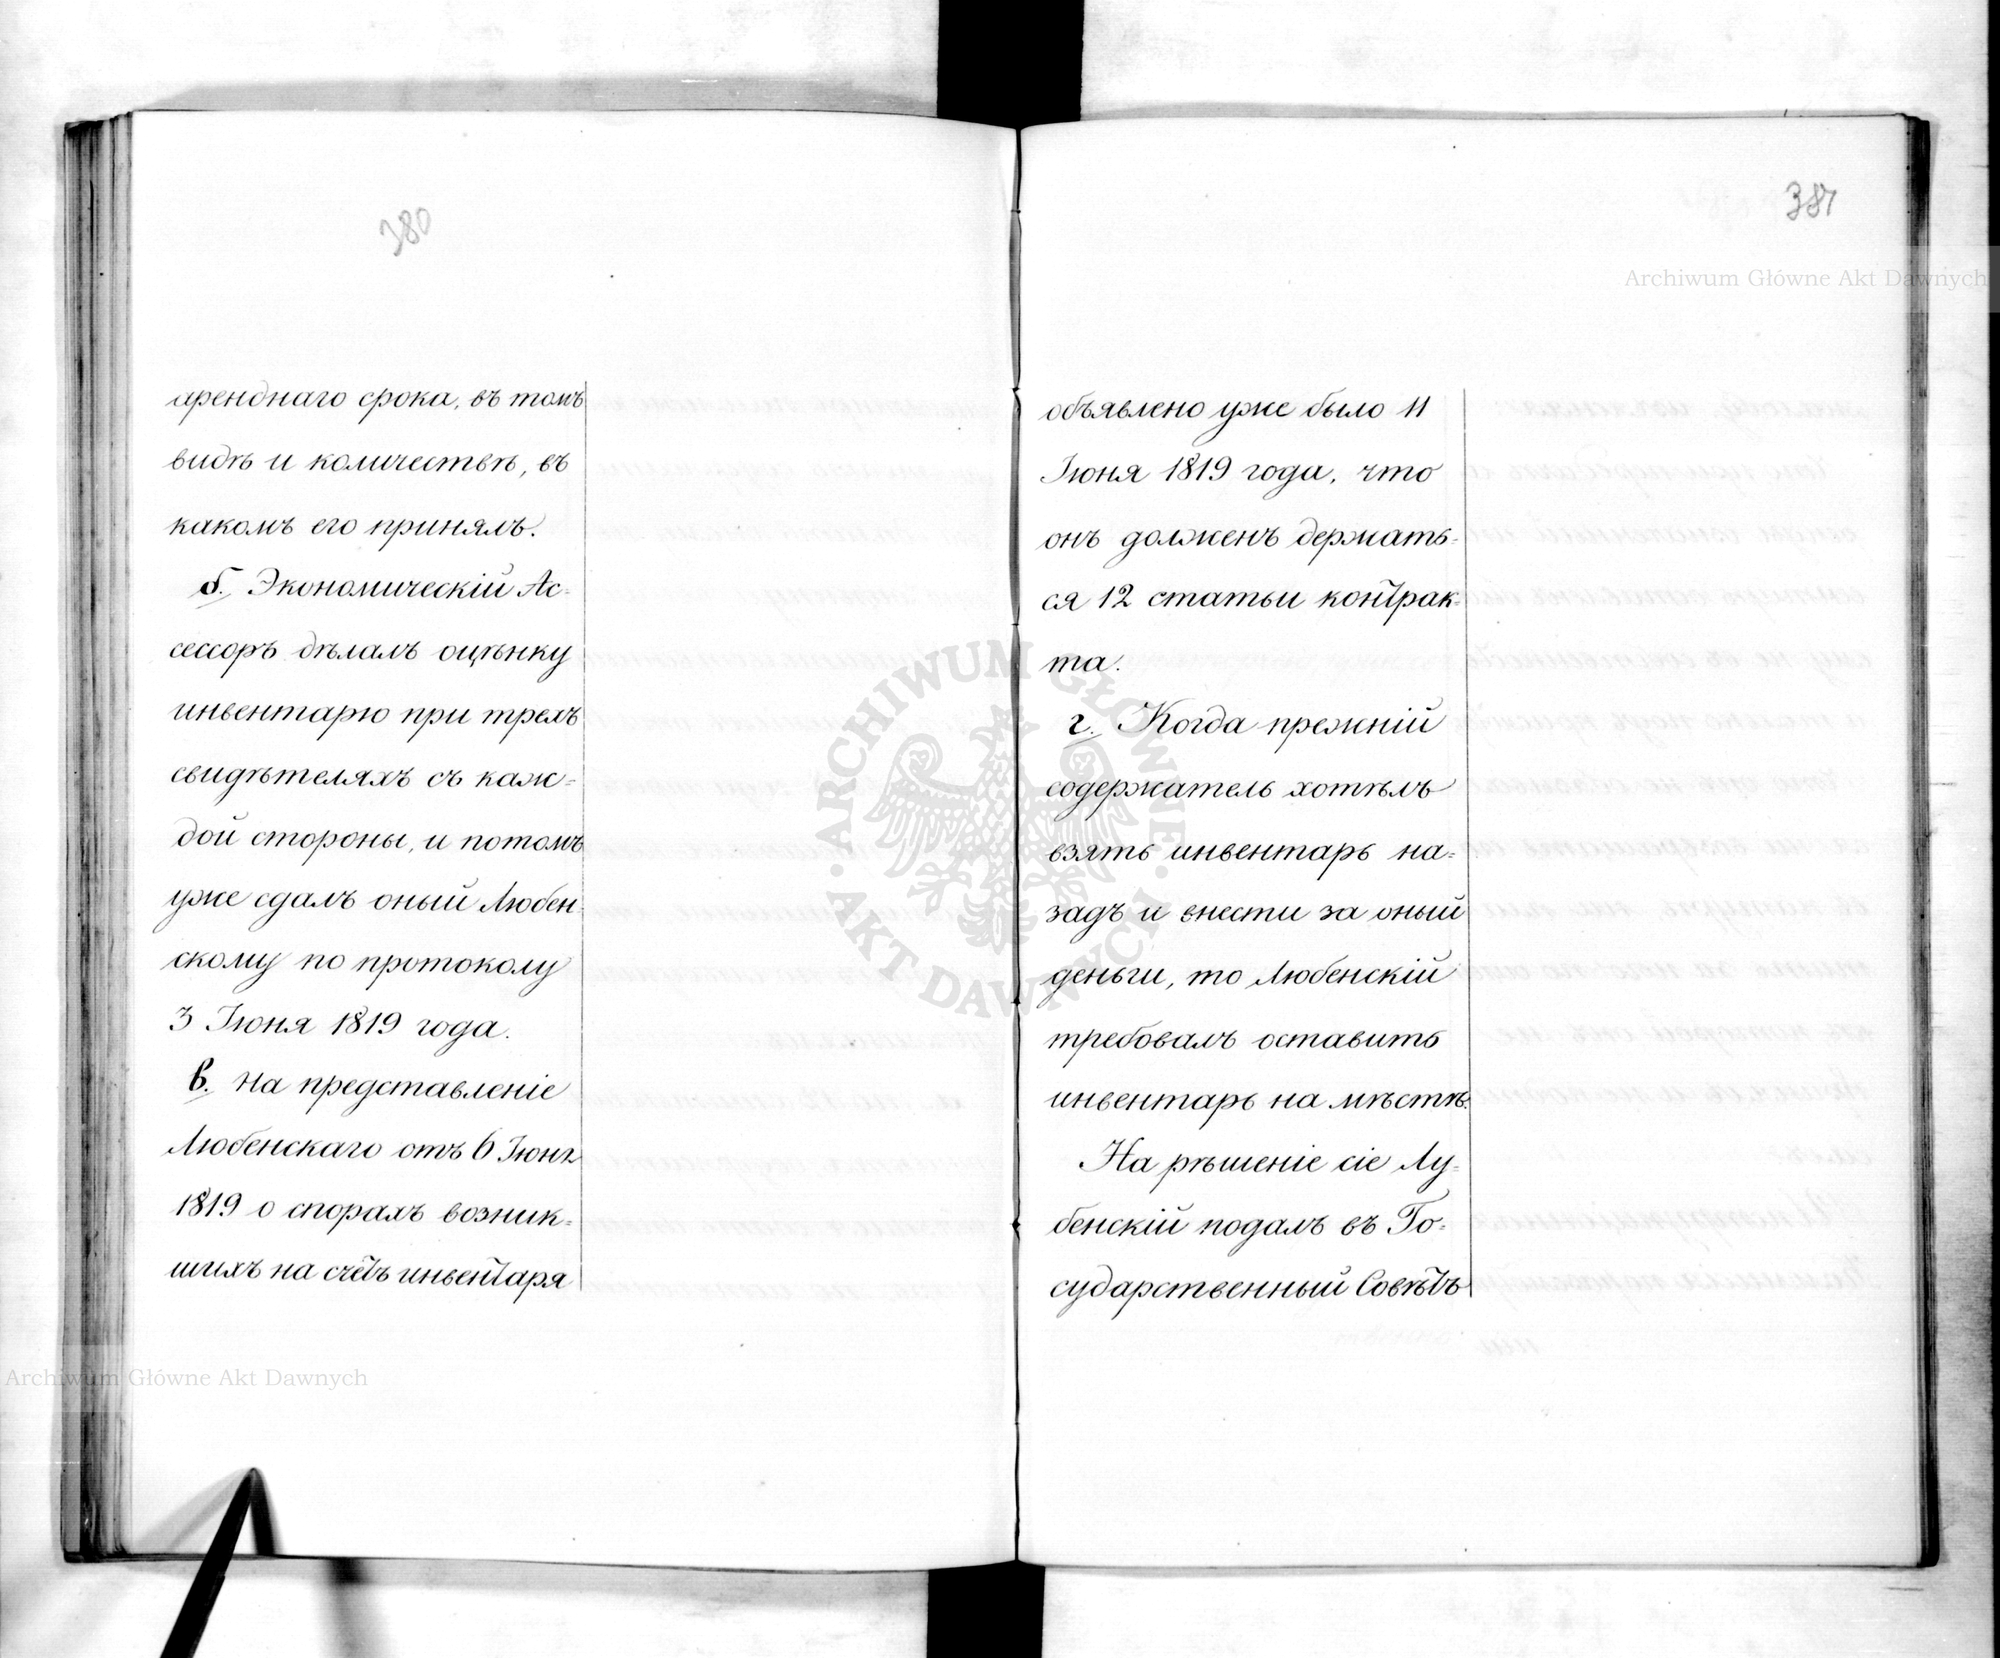 380
аренднаго срока, въ томъ
видѣ и количествѣ, въ
какомъ его принялъ.
б. Экономическій Ас-
сессоръ дѣлалъ оцѣнку
инвентарю при трехъ
свидѣтеляхъ съ каж-
дой стороны, и потомъ
уже сдалъ оный Любен-
скому по протоколу
3 Іюня 1819 года.
в. На представленіе
Любенскаго отъ 6 Іюня
1819 о спорахъ возник-
шихъ на счётъ инвентаря
Archiwum Główne Akt Dawnych
381
Archiwum Główne Akt Dawnych
объявлено уже было 11
Іюня 1819 года, что
онъ долженъ держать-
ся 12 статьи контрак-
та.
г. Когда прежній
содержатель хотѣлъ
взять инвентарь на-
задъ и внести за оный
деньги, то Любенскій
требовалъ оставить
инвентарь на мѣстѣ.
На рѣшеніе сіе Лу-
бенскій подалъ въ Го-
сударственный Совѣтъ
ARCHIWUM GŁÓWNE AKT DAWNYCH